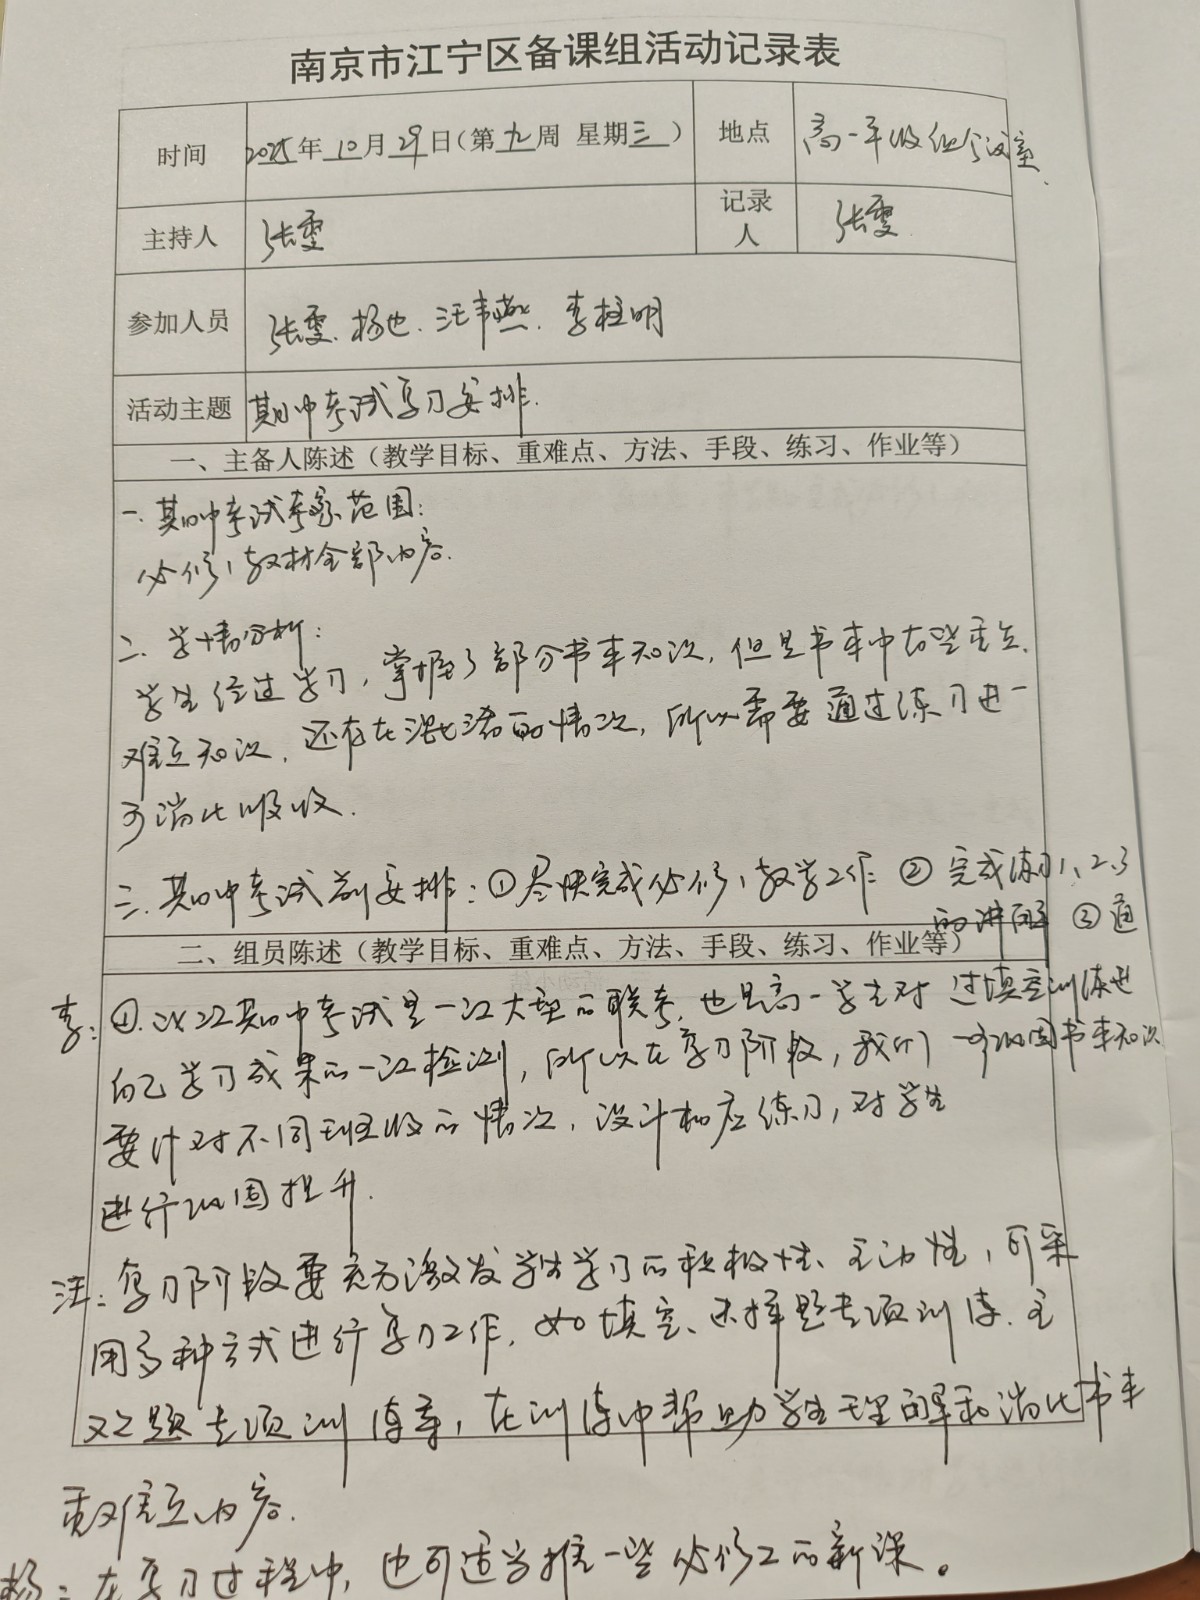 南京市江宁区备课组活动记录表
时间 2025年10月29日（第九周 星期三） 地点 高一年级组会议室.
主持人 张雯 记录人 张雯
参加人员 张雯. 杨也. 汪苇燕. 李桂明
活动主题 期中考试复习安排.
一、主备人陈述（教学目标、重难点、方法、手段、练习、作业等）
一. 期中考试考察范围:
必修1教材全部内容.
二. 学情分析:
学生经过学习，掌握了部分书本知识，但是书本中有些重点.
难点知识，还存在混淆的情况，所以需要通过练习进一
步消化吸收.
三. 期中考试前安排: ①尽快完成必修1教学工作 ② 完成练习1、2、3
的讲解 ③通
过填空训练进
一步巩固书本知识
二、组员陈述（教学目标、重难点、方法、手段、练习、作业等）
李: ①. 这次期中考试是一次大型的联考，也是高一学生对
自己学习成果的一次检测，所以在复习阶段，我们
要针对不同班级的情况，设计相应练习，对学生
进行巩固提升.
汪: 复习阶段要充分激发学生学习的积极性、主动性，可采
用多种方式进行复习工作，如填空、选择题专项训练. 主
观题专项训练等，在训练中帮助学生理解和消化书本
重难点内容.
杨: 在复习过程中，也可适当推一些必修2的新课。